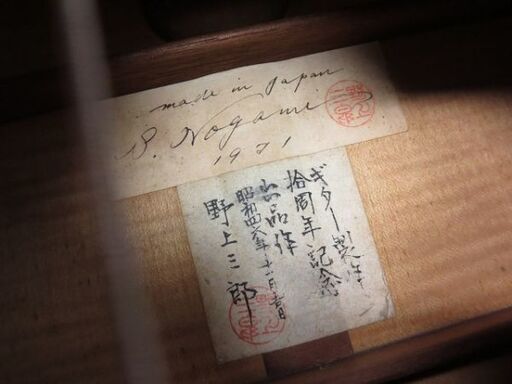 made in Japan
S. Nogami
1971
ギター製作
拾周年記念
出品作
昭和四六年十一月吉日
野上三郎